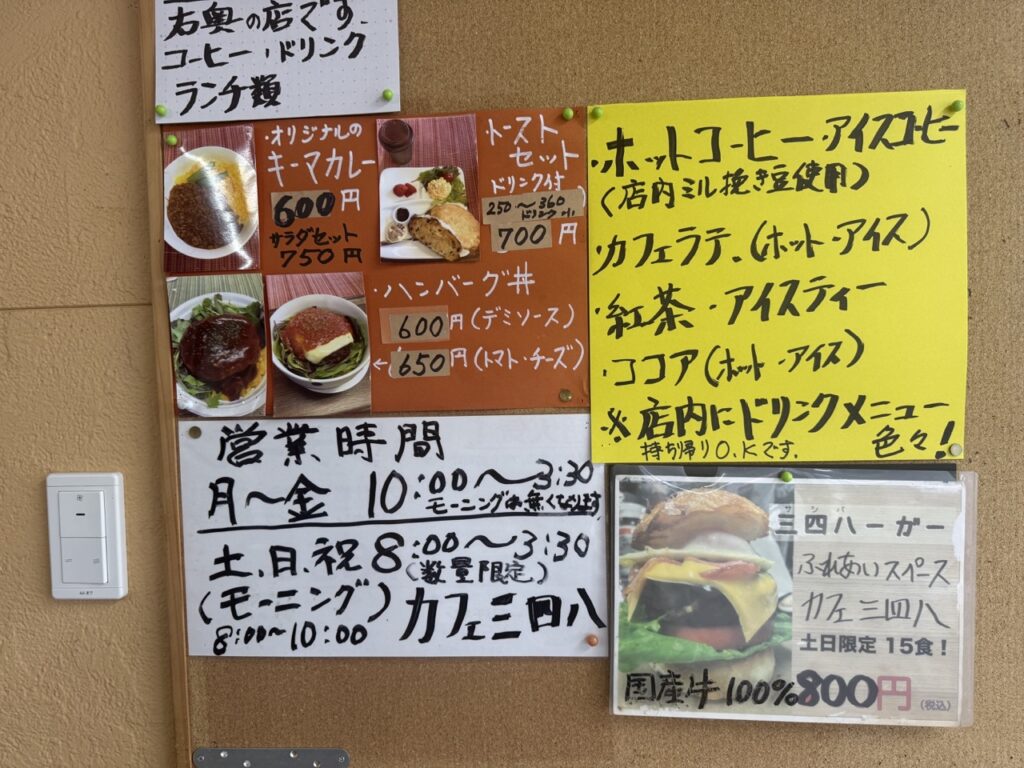 右奥の店です.
コーヒー・ドリンク
ランチ類
・オリジナルの
キーマカレー
600円
サラダセット
750円
・トースト
セット
ドリンク付
250〜360
700円
・ハンバーグ丼
600円(デミソース)
←650円(トマト・チーズ)
・ホットコーヒー・アイスコーヒー
(店内ミル挽き豆使用)
・カフェラテ.(ホット・アイス)
・紅茶・アイスティー
・ココア(ホット・アイス)
※店内にドリンクメニュー
色々!
持ち帰りO.Kです.
営業時間
月〜金 10:00〜3:30
モーニングは無くなります
土、日、祝 8:00〜3:30
(数量限定)
(モーニング)
8:00〜10:00
カフェ三四八
サンバ
三四八ーガー
ふれあいスペース
カフェ三四八
土日限定 15食!
国産牛100% 800円(税込)